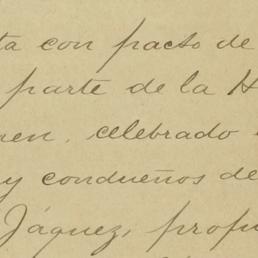 ta con pacto de
parte de la H
nen, celebrado
y condueños de
Jáquez, propu